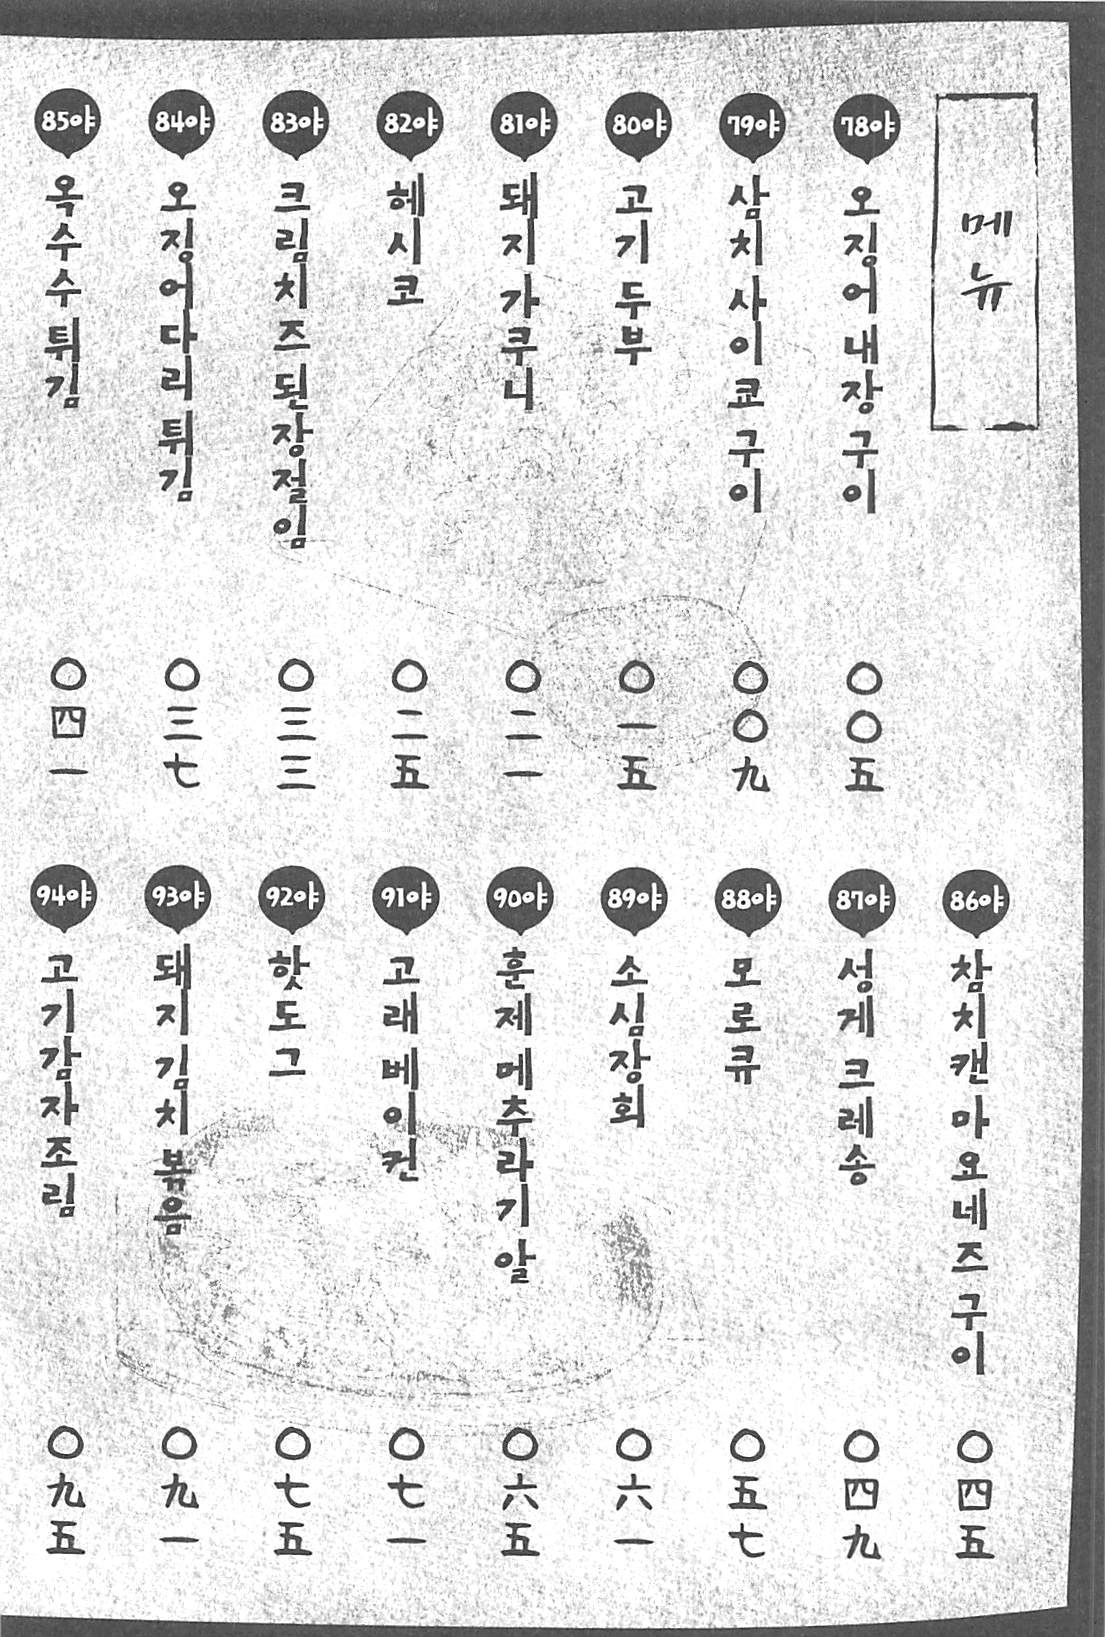 메뉴
78야 오징어 내장 구이 〇〇五
79야 삼치 사이쿄 구이 〇〇九
80야 고기 두부 〇一五
81야 돼지 가쿠니 〇二一
82야 헤시코 〇二五
83야 크림치즈 된장절임 〇三三
84야 오징어다리 튀김 〇三七
85야 옥수수 튀김 〇四一
86야 참치캔 마요네즈 구이 〇四五
87야 성게 크레송 〇四九
88야 모로큐 〇五七
89야 소심장회 〇六一
90야 훈제 메추라기 알 〇六五
91야 고래 베이컨 〇七一
92야 핫도그 〇七五
93야 돼지 김치 볶음 〇九一
94야 고기감자조림 〇九五